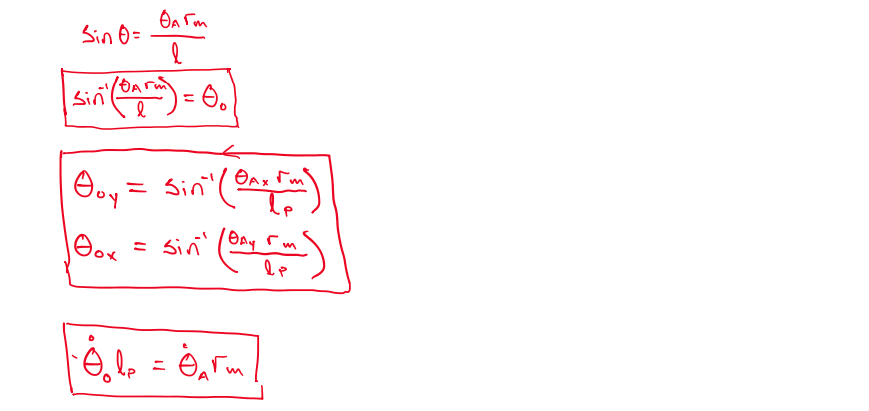 sin θ = θ_A r_m / l
sin⁻¹(θ_A r_m / l) = θ_o
θ_oy = sin⁻¹(θ_Ax r_m / l_p)
θ_ox = sin⁻¹(θ_Ay r_m / l_p)
θ̇_o l_p = θ̇_A r_m